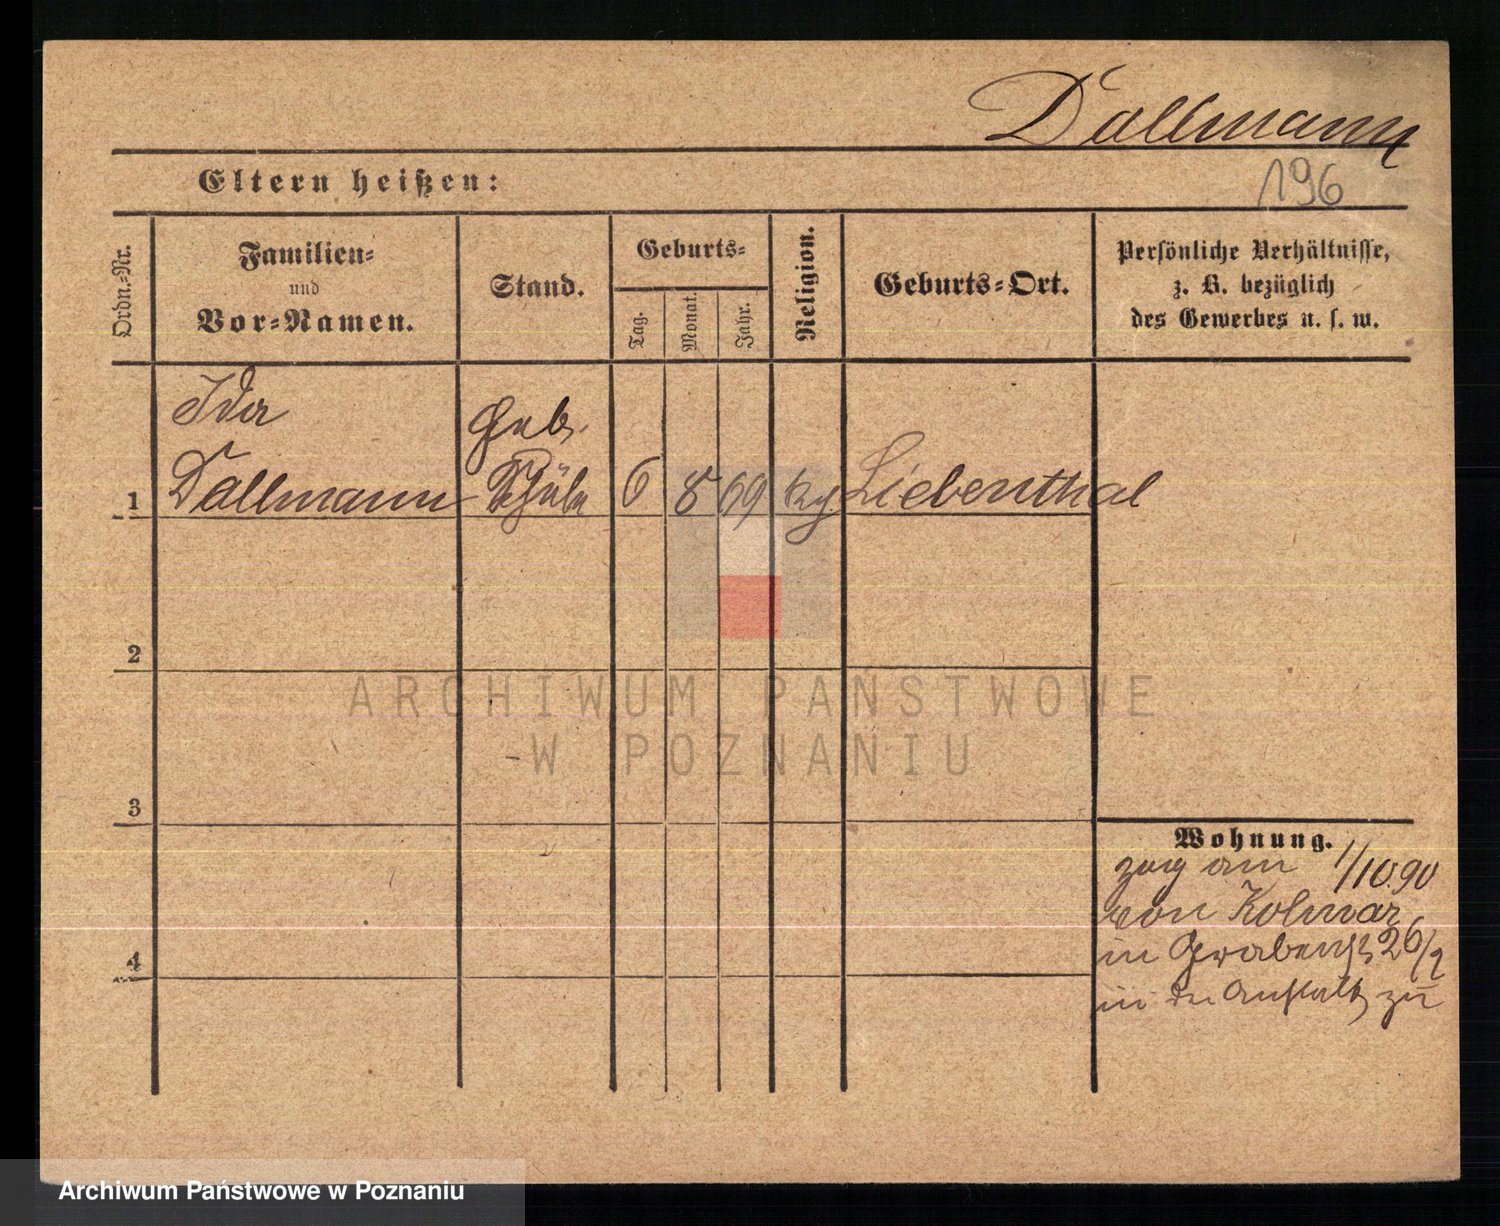 Dallmann
Eltern heißen:
196
Ordn.-Nr.
Familien-
und
Vor-Namen.
Stand.
Geburts-
Tag.
Monat.
Jahr.
Religion.
Geburts-Ort.
Persönliche Verhältnisse,
z. B. bezüglich
des Gewerbes u. s. w.
Ida
Dallmann
Geb.
1
6
8
69
Liebenthal
2
3
4
ARCHIWUM PAŃSTWOWE
W POZNANIU
Wohnung.
zog am 1/10.90
von Kolmar
in Grabenstr 26/
in der Anstalt zu
Archiwum Państwowe w Poznaniu